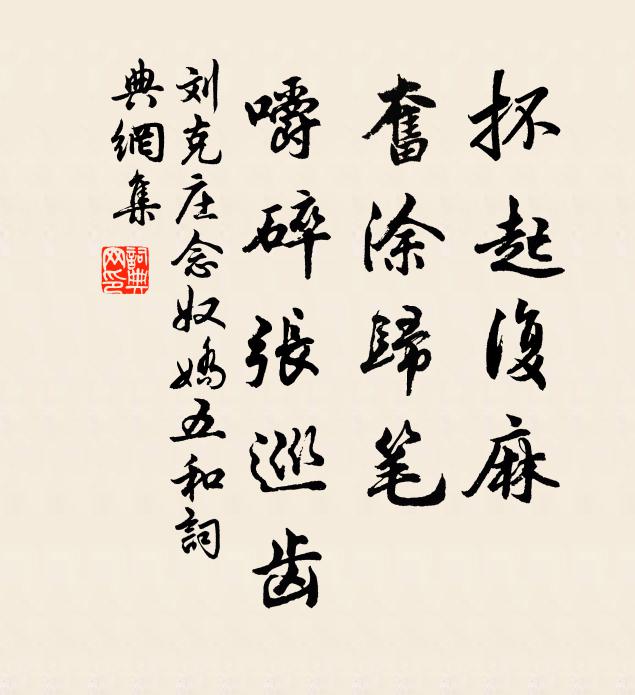 抔起復麻
奮涂歸笔
嚼碎張巡齿
刘克庄念奴嬌五和詞
典網集
詞典
网印